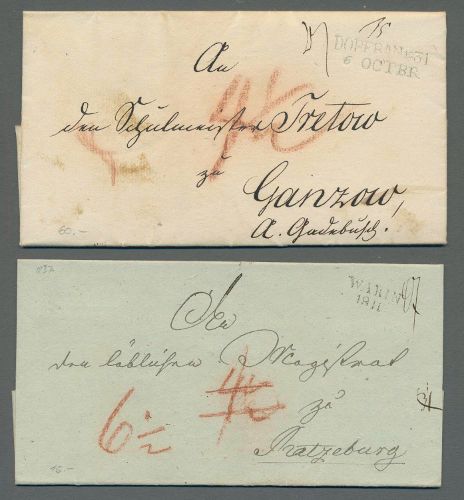 An
DOBERAN
6 OCTBR
4½
den Schulmeister Tretow
zu
Ganzow,
A. Gadebusch.
60.-
1132
WARIN
18 11
An
den löblichen Magistrat
zu
6½
4½
Ratzeburg
15.-